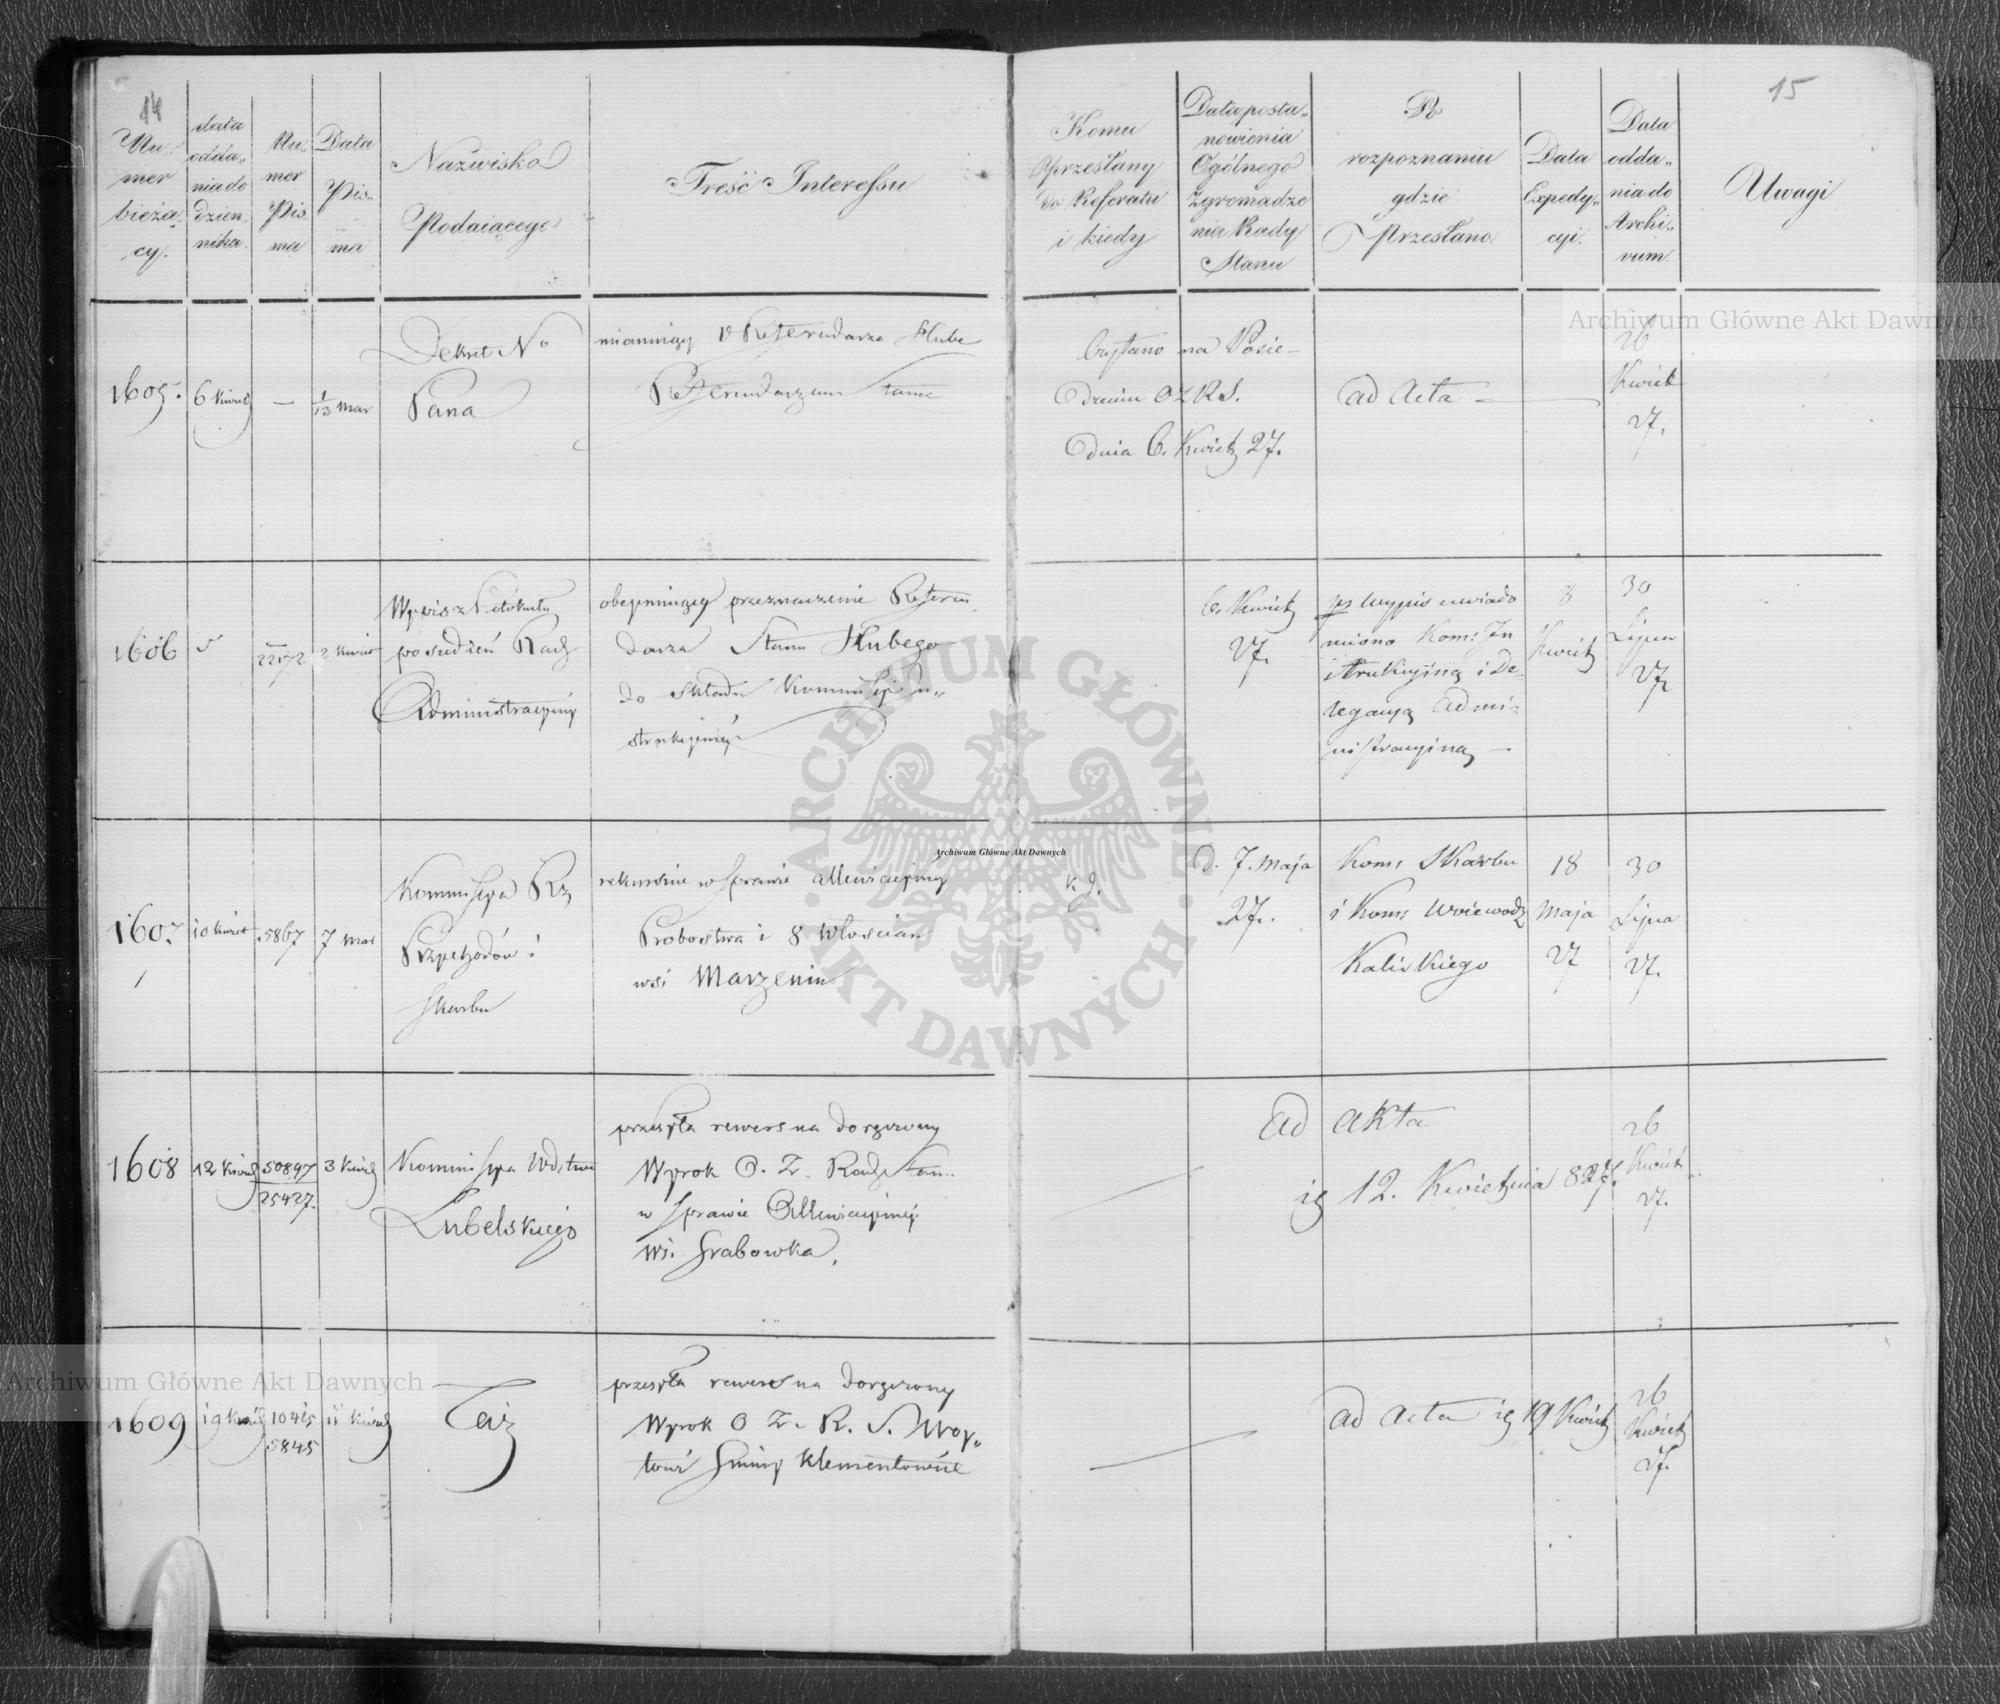 14
Nu-
mer
bieżą-
cy.
data
odda-
nia do
dzien
nika.
Nu-
mer
Pis
ma
Data
Pis-
ma
Nazwisko
Podaiącego
Treść Interessu
15
Komu
przesłany
do Referatu
i kiedy
Data posta-
nowienia
Ogólnego
Zgromadze
nia Rady
Stanu
Po
rozpoznaniu
gdzie
Przesłano
Data
Expedy-
cyi.
Data
odda-
nia do
Archi-
vum
Uwagi
1605.
6 Kwiet
—
1/13 Mar
Dekret No
Pana
mianuiący V Referendarza Hube
Referendarzem Stanu
Czytano na Posie-
dzeniu OZRS.
dnia 6. Kwiet 27.
ad Acta —
26
Kwiet
27.
1606
5
22172
2 Kwiet
Wypis z Protokułu
posiedzeń Rady
Administracyiny
obeymuiący przeznaczenie Referen
darza Stanu Hubego
do składu Kommissyi In-
strukcyiney
6. Kwiet
27.
pr Wypis uwiado
miono Kom: In
strukcyiną i De-
legacyą Admi-
nistracyiną —
8
Kwiet
30
Lipca
27
1607
10 Kwiet
5867
7 Mar
Kommissya Rz
Przychodów i
Skarbu
rekursie w sprawie alleviacyiney
Probostwa i 8 Włoscian
wsi Marzenin
K. J.
d. 7. Maja
27.
Kom: Skarbu
i Kom: Woiewodz
Kaliskiego
18
Maja
27
30
Lipca
27.
1608
12 Kwiet
50897
25427.
3 Kwiet
Kommissya Wdztwa
Lubelskiego
przesyła rewers na doręczony
Wyrok O. Z. Rady Stanu
w sprawie Alleviacyiney
Wsi Grabowka.
Ad akta
12. Kwietnia 827.
26
Kwiet
27.
1609
19 Kwiet
10415
5845
11 Kwiet
Taż
przesyła rewers na doręczony
Wyrok O Z. R. S. Woy-
towi Gminy Klementowice
ad acta 19 Kwiet
26
Kwiet
27.
Archiwum Główne Akt Dawnych
Archiwum Główne Akt Dawnych
Archiwum Główne Akt Dawnych
ARCHIWUM GŁÓWNE AKT DAWNYCH